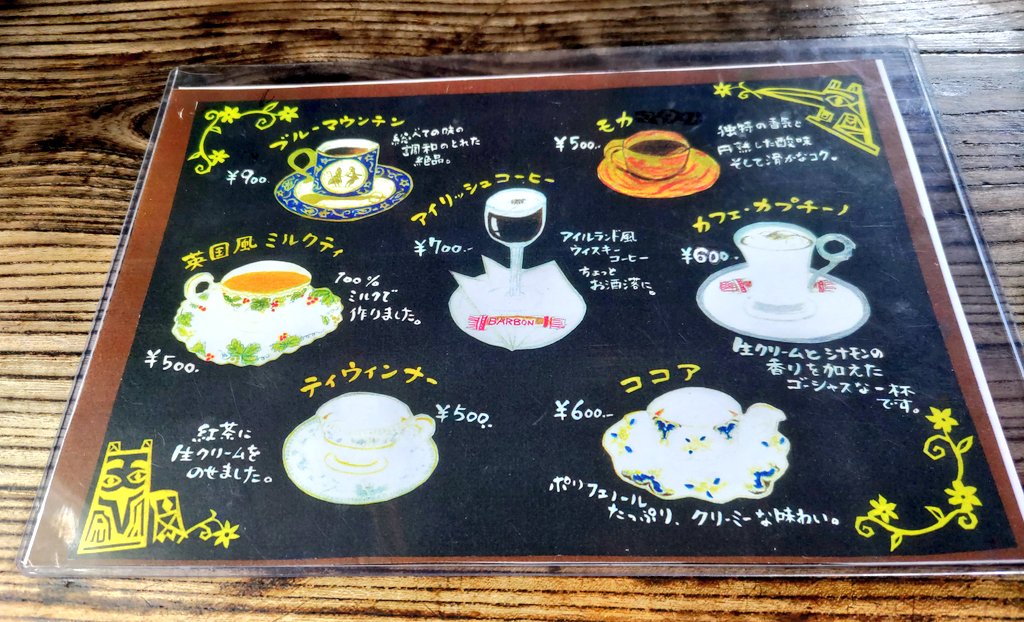 ブルーマウンテン
¥900.
総べての味の
調和のとれた
絶品。
モカ
¥500.
独特の香気と
円熟した酸味
そして滑かなコク。
アイリッシュコーヒー
¥700.-
アイルランド風
ウィスキー
コーヒー
ちょっと
お洒落に。
BARBON
カフェ・カプチーノ
¥600.-
生クリームとシナモンの
香りを加えた
ゴージャスな一杯
です。
英国風ミルクティ
¥500.
100%
ミルクで
作りました。
ティウィンナー
¥500.
紅茶に
生クリームを
のせました。
ココア
¥600.-
ポリフェノール
たっぷり、クリーミーな味わい。